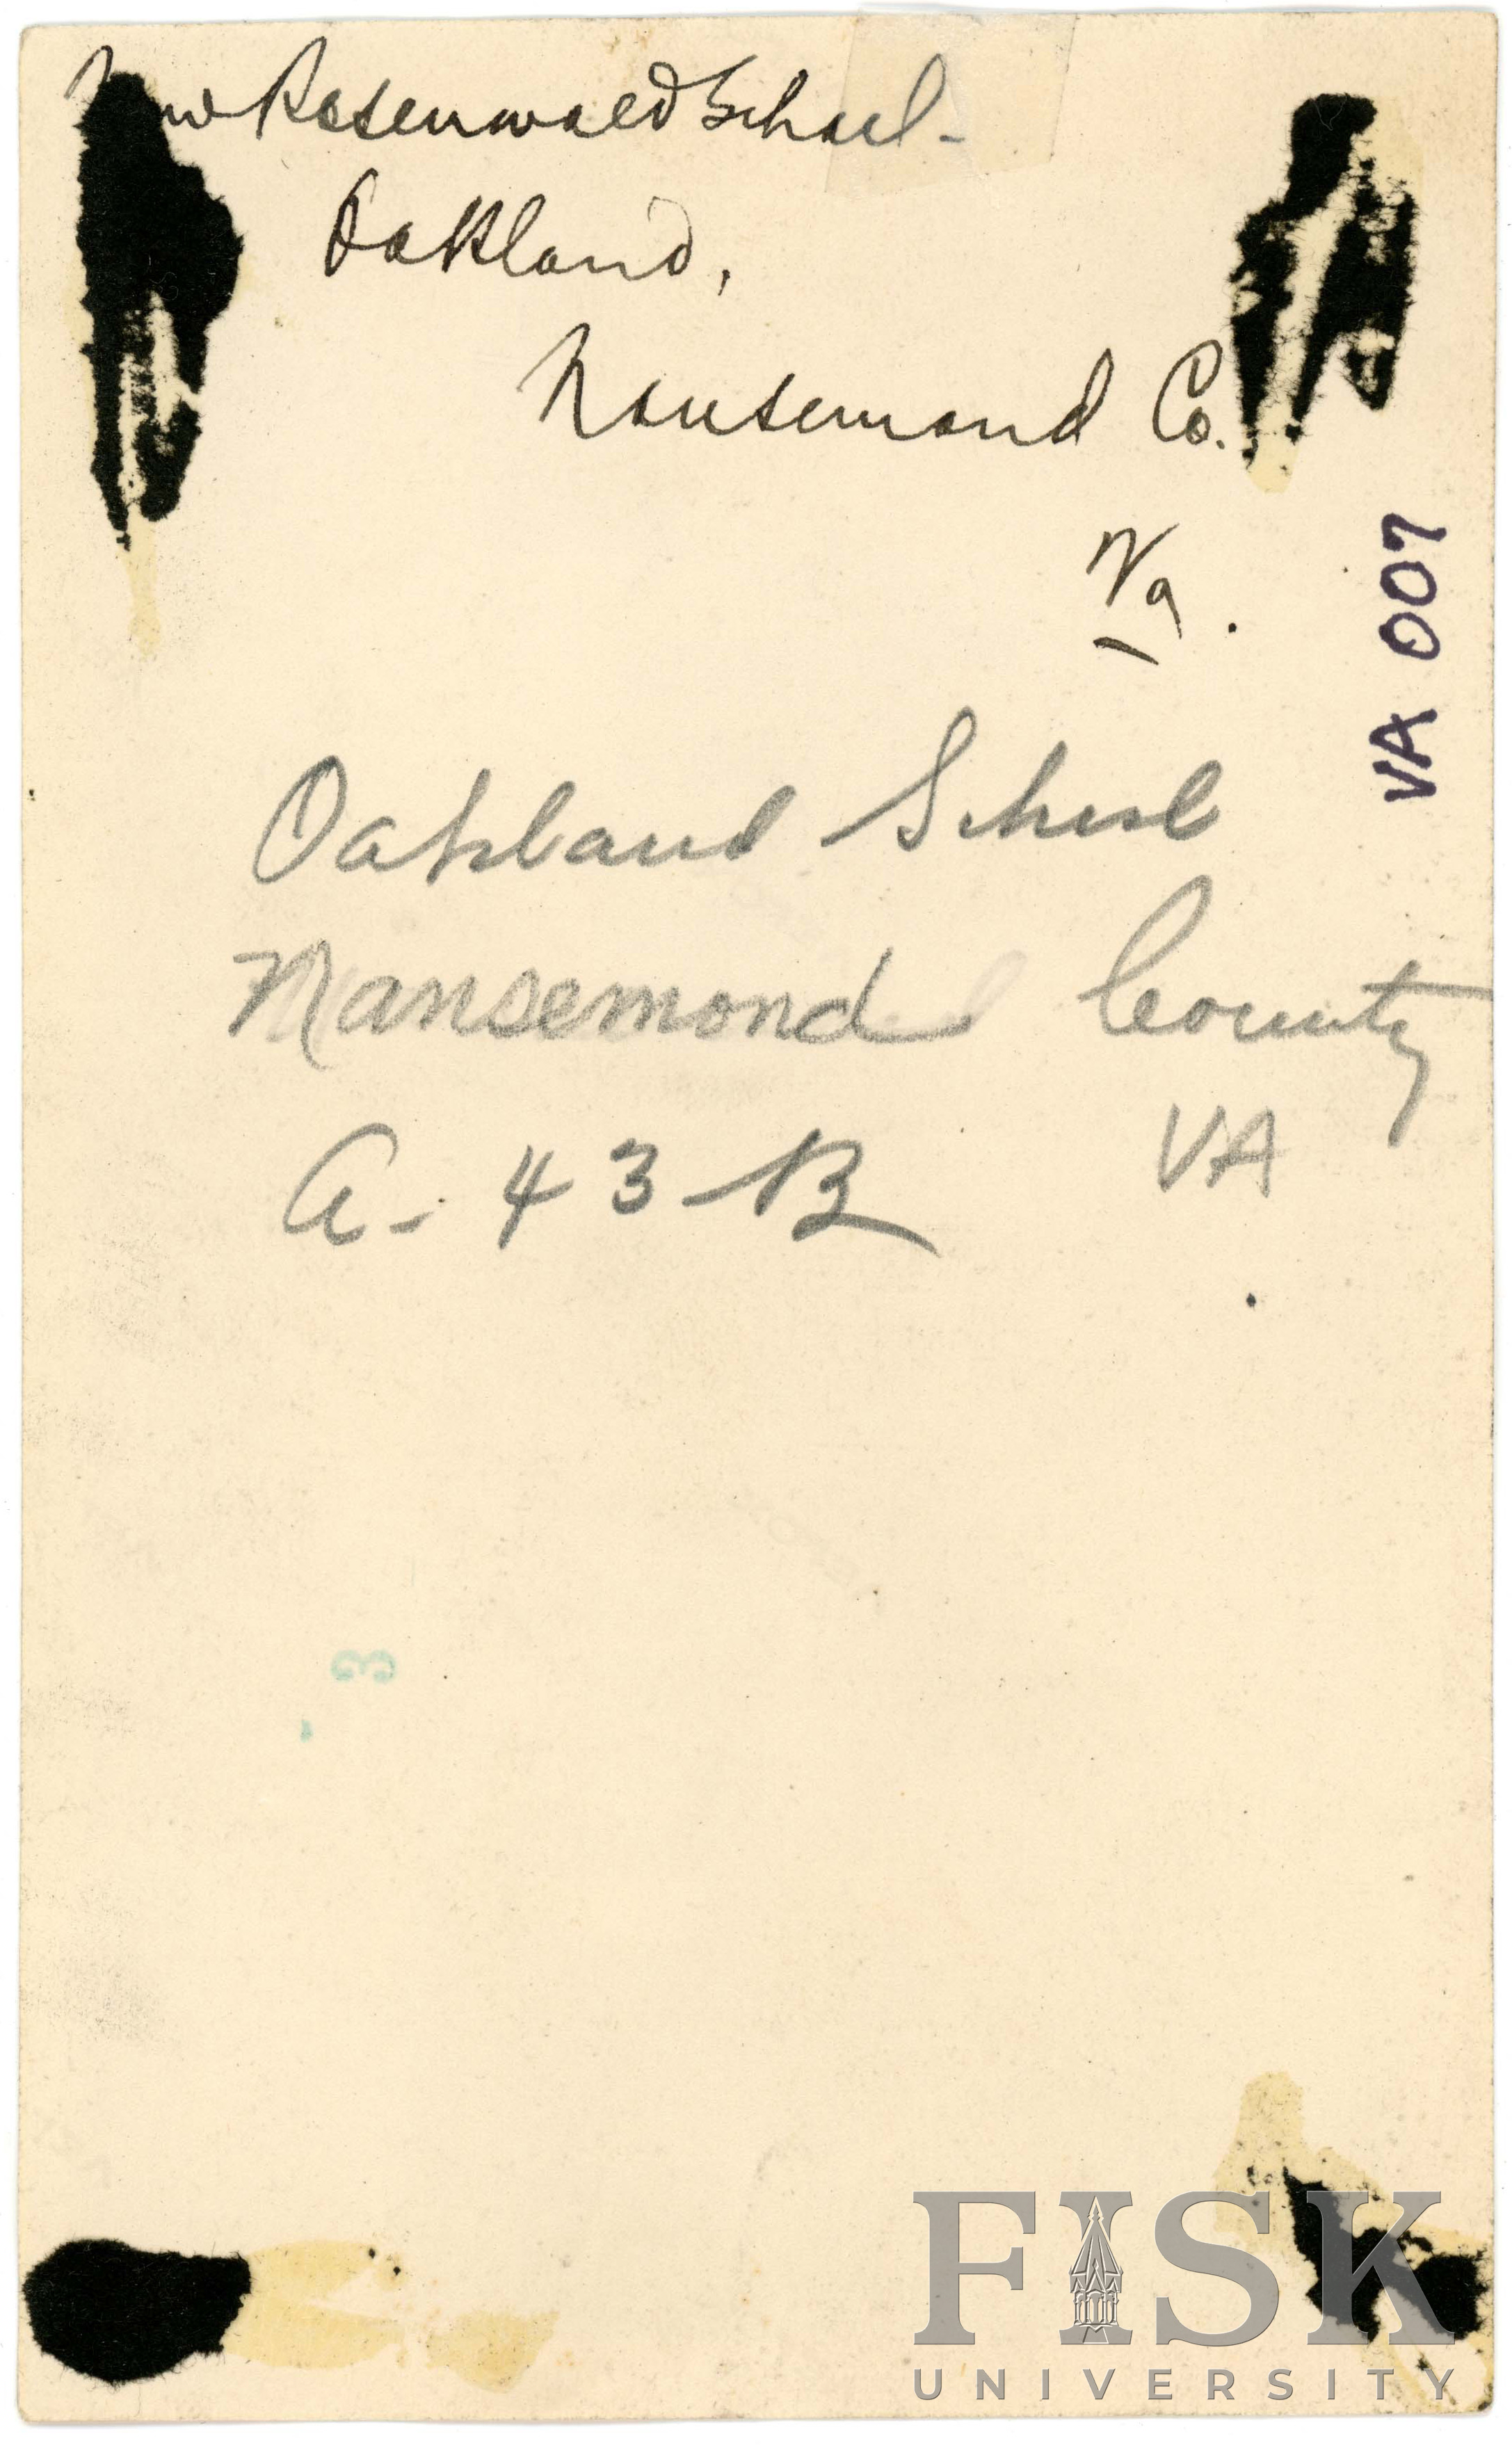 New Rosenwald School-
Oakland,
Nansemond Co.
Va.
VA 007
Oakland School
Nansemond County
A-43-B VA
3
FISK
UNIVERSITY